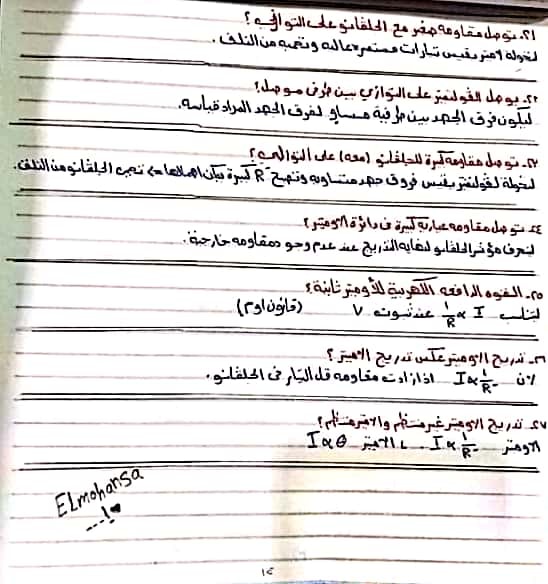 ٢١. توصل مقاومه صغر مع الجلفانو على التوازي؟
لتحوله لاميتر يقيس تيارات مستمره عاليه وتحميه من التلف.
٢٢. يوصل الڤولتميتر على التوازي بين طرفى موصل؟
ليكون فرق الجهد بين طرفية مساوٍ لفرق الجهد المراد قياسه.
٢٣. توصل مقاومه كبيرة للجلفانو (معه) على التوالي؟
لتحولة لڤولتميتر يقيس فروق جهد وتصبح R كبيرة تحمى الجلفانو من التلف.
٢٤. توصل مقاومه عياريه كبيرة فى دائرة الاوميتر؟
لينحرف مؤشر الجلفانو لنهايه التدريج عند عدم وجود مقاومه خارجية.
٢٥. القوه الدافعه الكهربية للأوميتر ثابتة؟
لتناسب I ∝ 1/R عند ثبوت V (قانون اوم)
٢٦. تدريج الاوميتر عكس تدريج الاميتر؟
لان I ∝ 1/R اذا زادت مقاومه قل التيار فى الجلفانو.
٢٧. تدريج الاوميتر غير منتظم والاميتر منتظم؟
الاوميتر I ∝ 1/R الاميتر I ∝ θ
ELmoharsa
١٤